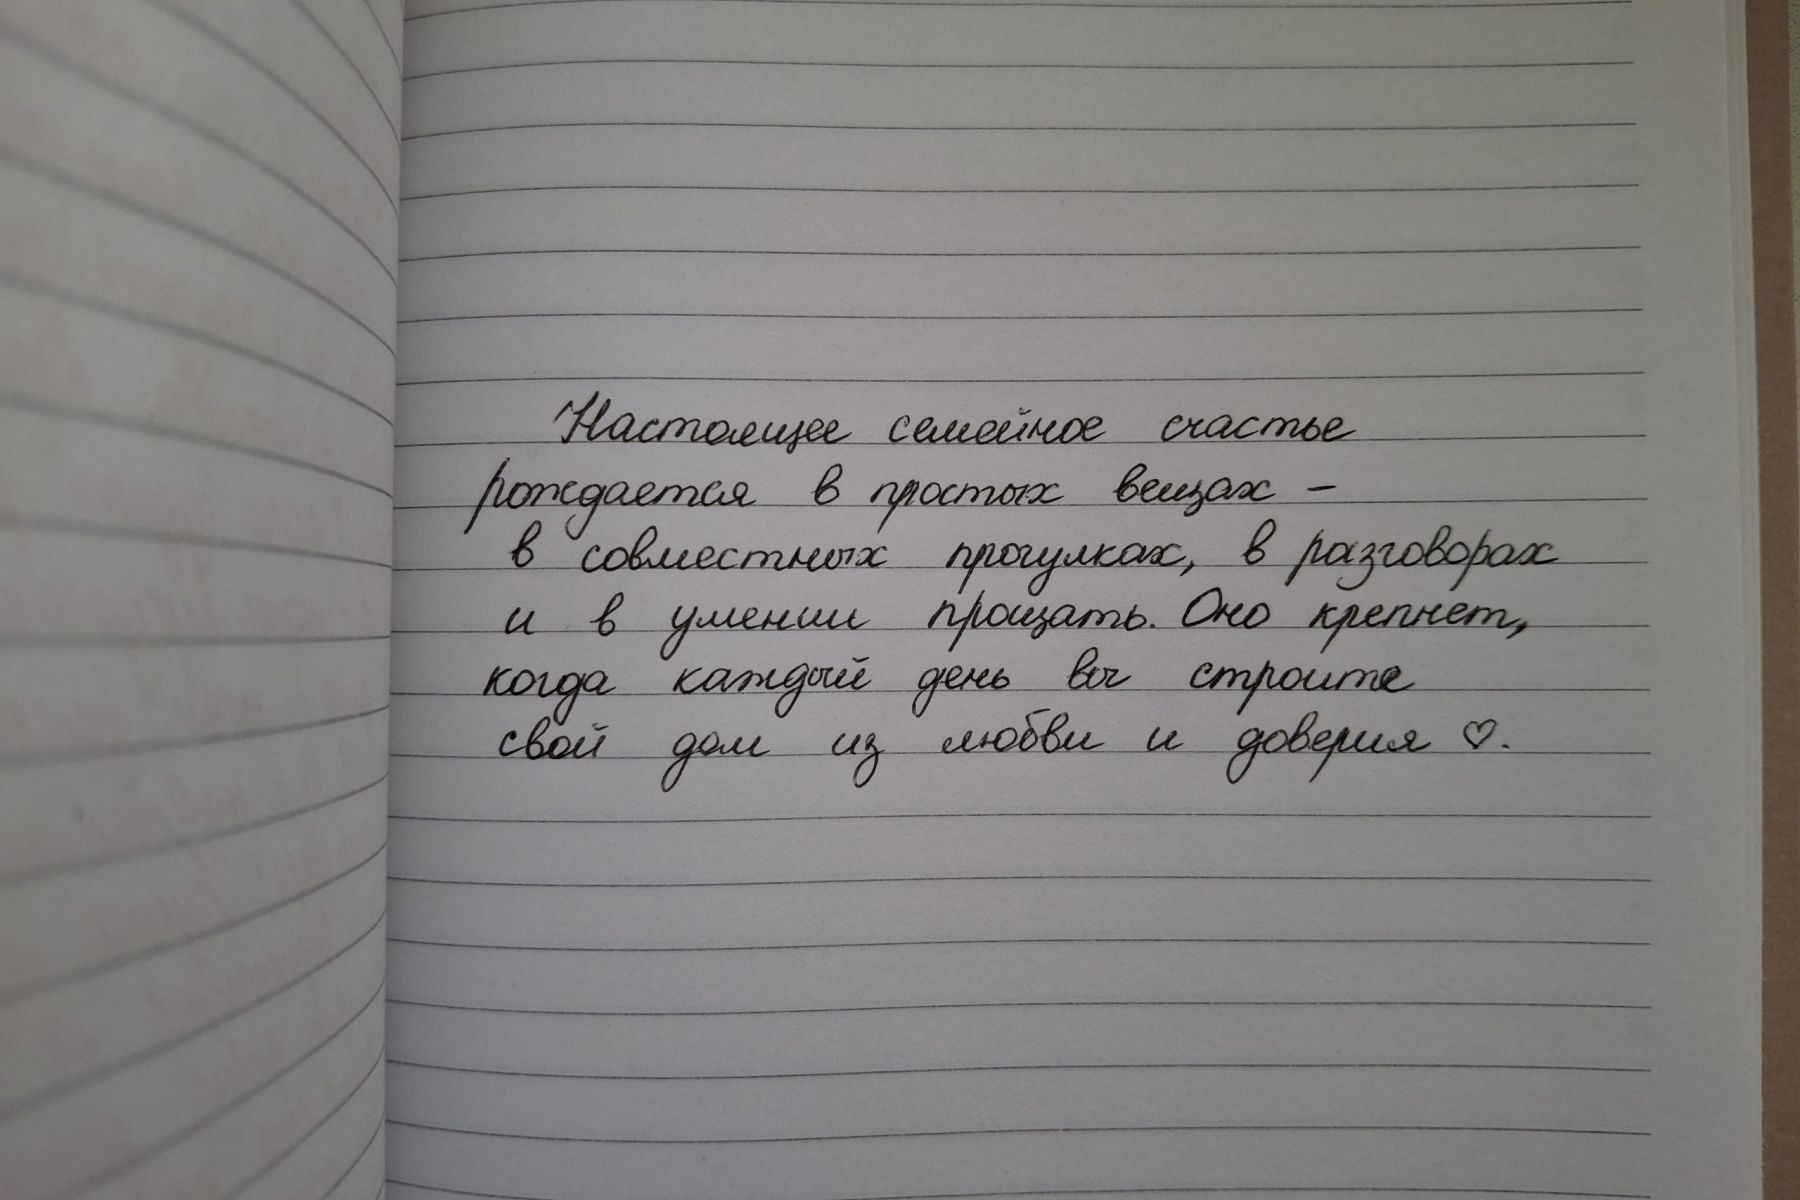 Настоящее семейное счастье
рождается в простых вещах –
в совместных прогулках, в разговорах
и в умении прощать. Оно крепнет,
когда каждый день вы строите
свой дом из любви и доверия ♡.